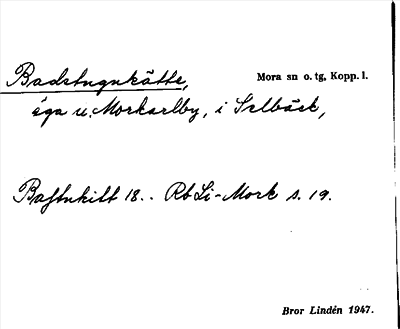 Badstugukätte, Mora sn o. tg, Kopp. l.
äga u. Morkarlby, i Selbäck,
Baftukilt 18.. Rb Li-Mork s. 19.
Bror Lindén 1947.